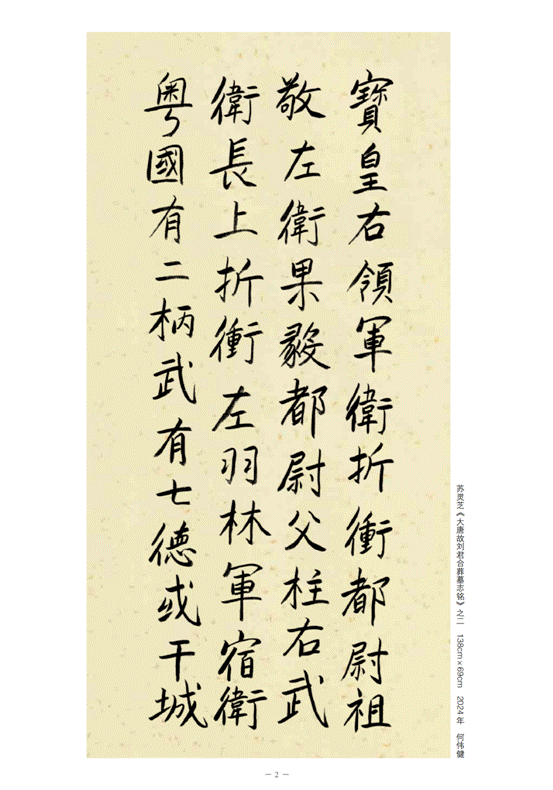 寶皇右領軍衛折衝都尉祖
敬左衛果毅都尉父柱右武
衛長上折衝左羽林軍宿衛
粤國有二柄武有七德或干城
苏灵芝《大唐故刘君合葬墓志铭》之二 138cm×69cm 2024年 何伟健
— 2 —